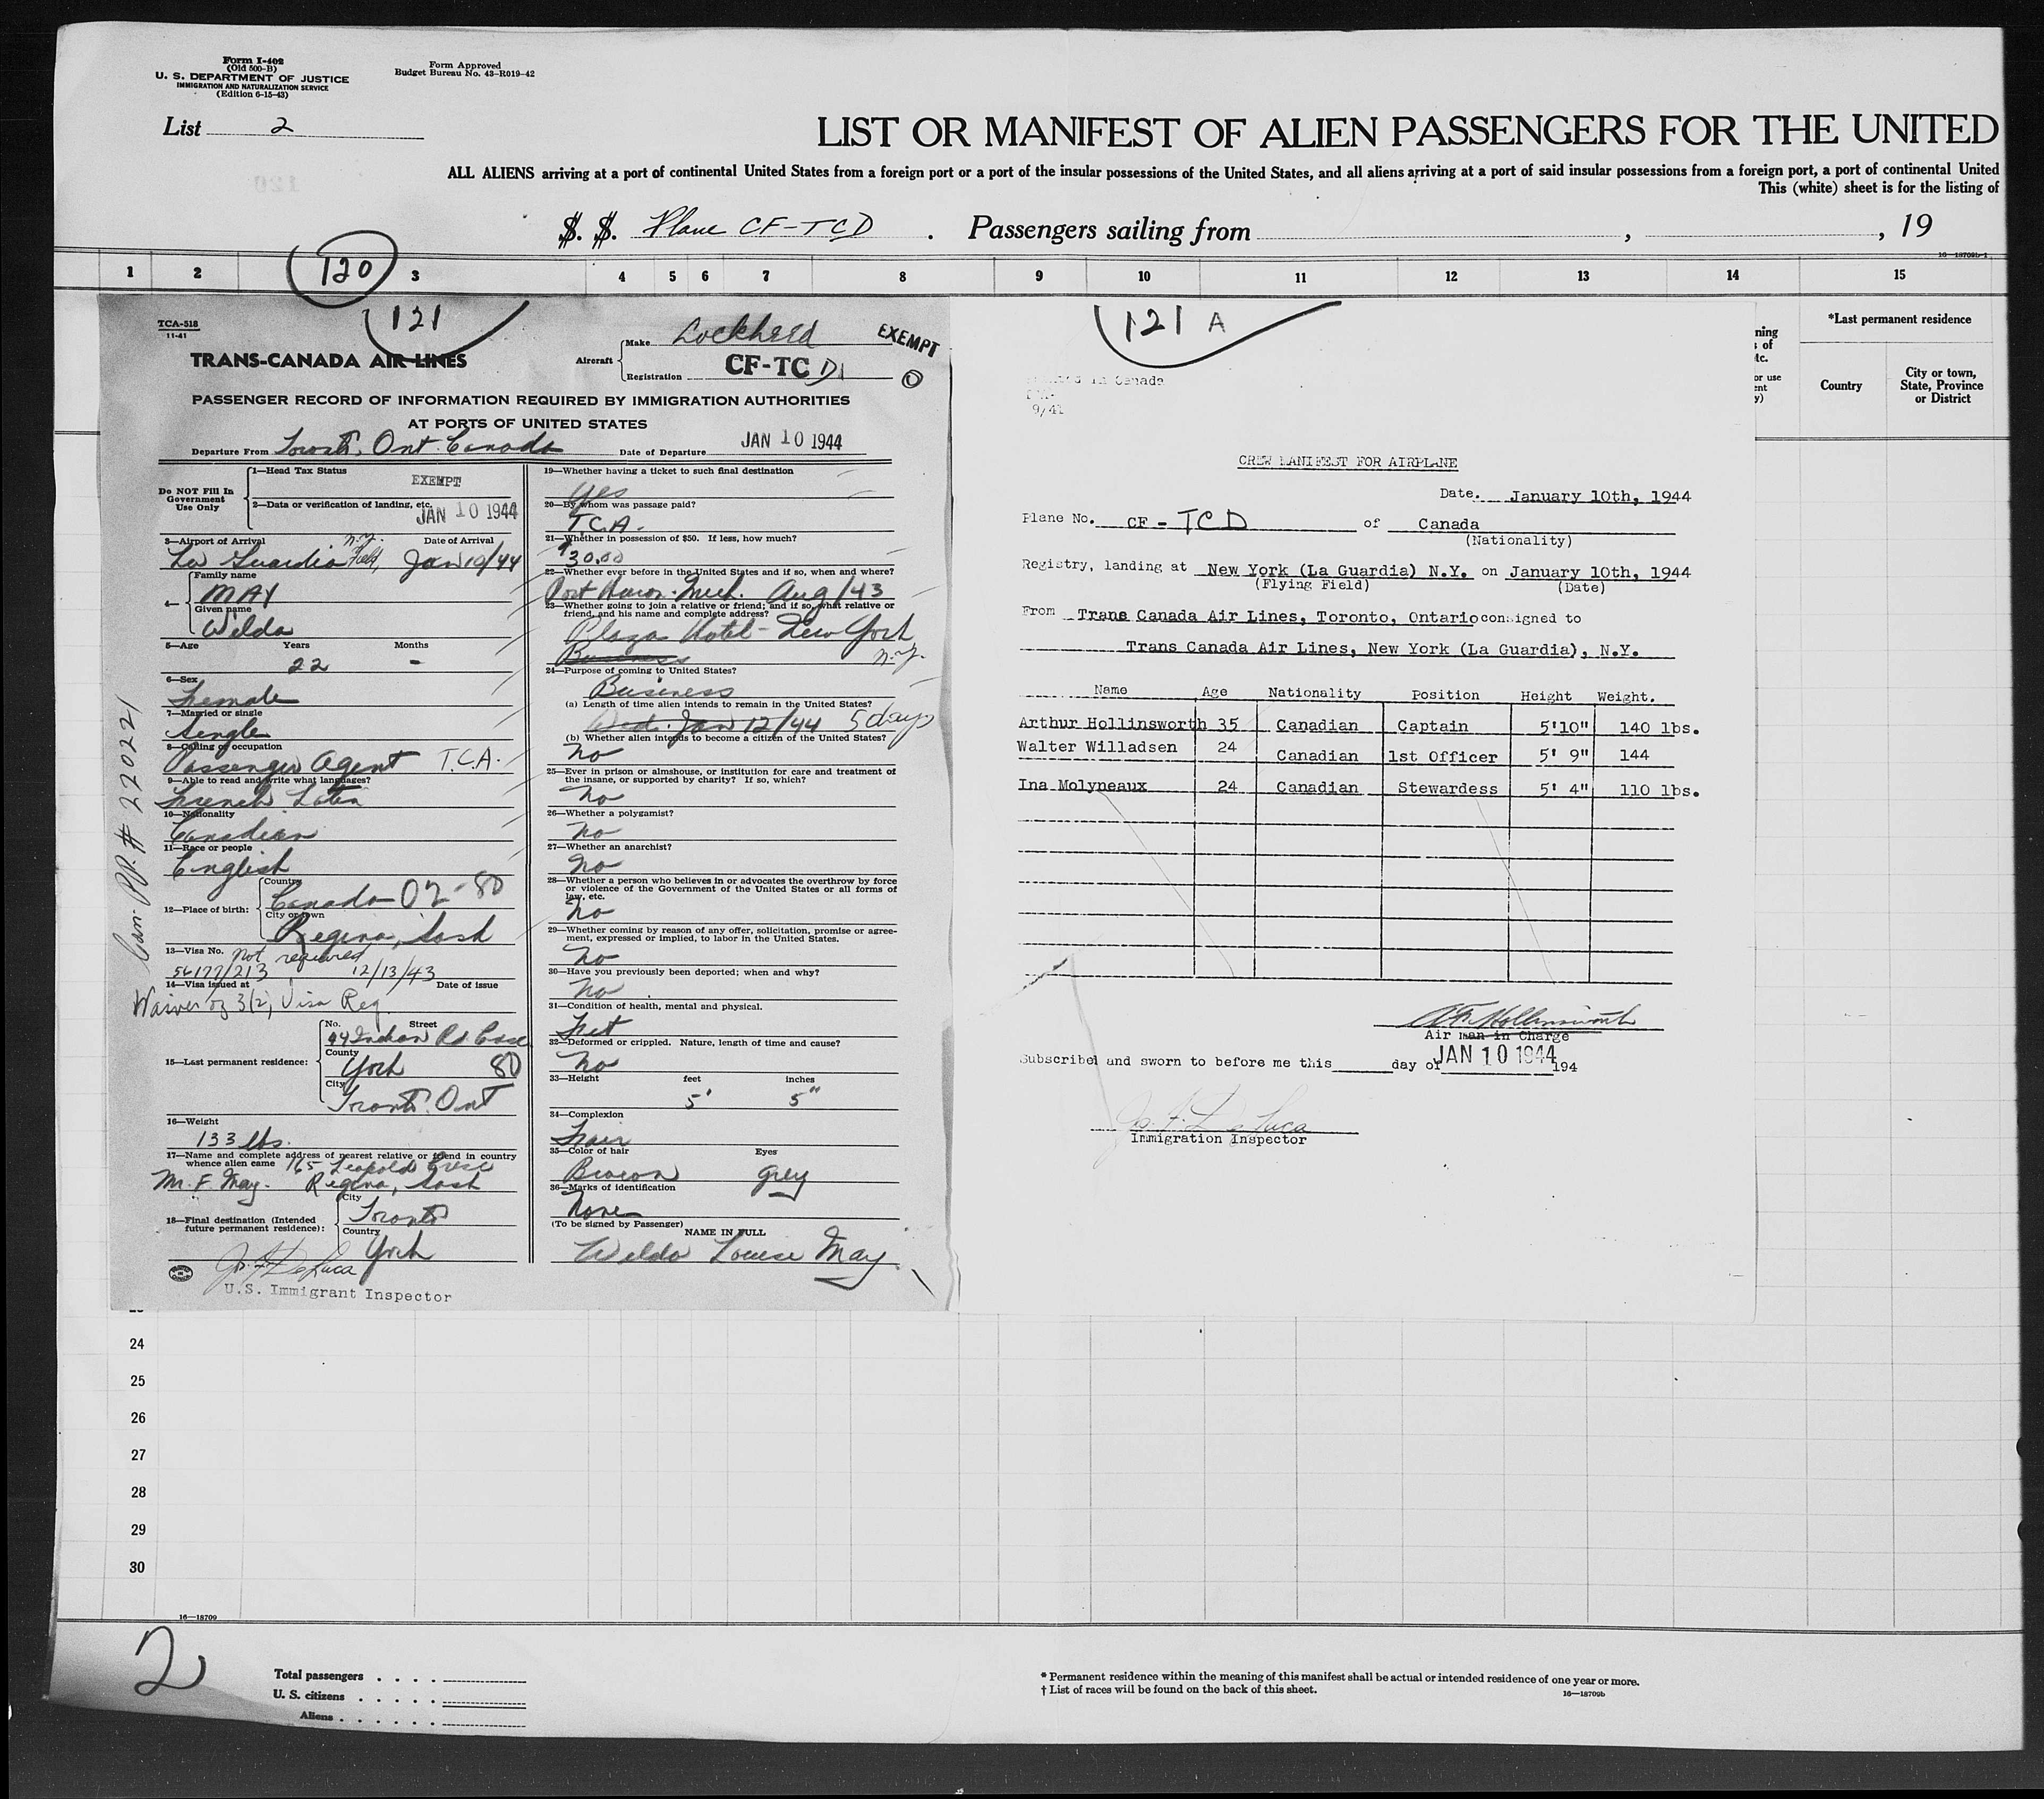 Form I-402
(Old 500-B)
U. S. DEPARTMENT OF JUSTICE
IMMIGRATION AND NATURALIZATION SERVICE
(Edition 6-15-43)
Form Approved
Budget Bureau No. 43-R019-42
List 2
LIST OR MANIFEST OF ALIEN PASSENGERS FOR THE UNITED
ALL ALIENS arriving at a port of continental United States from a foreign port or a port of the insular possessions of the United States, and all aliens arriving at a port of said insular possessions from a foreign port, a port of continental United
This (white) sheet is for the listing of
120
S. S. Plane CF-TCD . Passengers sailing from , , 19
16-18709b-1
1 2 120 3 4 5 6 7 8 9 10 11 12 13 14 15
TCA-518
11-41
121
TRANS-CANADA AIR LINES
Aircraft
Make Lockheed
Registration CF-TC D
EXEMPT
PASSENGER RECORD OF INFORMATION REQUIRED BY IMMIGRATION AUTHORITIES
AT PORTS OF UNITED STATES
Departure From Toronto, Ont. Canada Date of Departure JAN 10 1944
Do NOT Fill In
Government
Use Only
1—Head Tax Status
EXEMPT
2—Data or verification of landing, etc.
JAN 10 1944
3—Airport of Arrival Date of Arrival
La Guardia Field, N.Y. Jan 10/44
4—
Family name
MAY
Given name
Welda
5—Age Years Months
22 -
6—Sex
Female
7—Married or single
Single
8—Calling or occupation
Passenger Agent T.C.A.
9—Able to read and write what languages?
French Latin
10—Nationality
Canadian
11—Race or people
English
12—Place of birth:
Country
Canada 02-80
City or town
Regina, Sask
13—Visa No. Not required
56177/213 12/13/43
14—Visa issued at Date of issue
Waiver of 3(2) Visa Req
15—Last permanent residence:
No. Street
94 Indian Rd Cres
County
York 80
City
Toronto. Ont
16—Weight
133 lbs.
17—Name and complete address of nearest relative or friend in country
whence alien came 165 Leopold Cresc
Mr. F. May. Regina, Sask
18—Final destination (Intended
future permanent residence):
City
Toronto
Country
York
Jos. F. De Luca
U.S. Immigrant Inspector
Can. PP. # 220221
19—Whether having a ticket to such final destination
Yes
20—By whom was passage paid?
T.C.A.
21—Whether in possession of $50. If less, how much?
$30.00
22—Whether ever before in the United States and if so, when and where?
Port Huron. Mich. Aug/43
23—Whether going to join a relative or friend; and if so, what relative or
friend, and his name and complete address?
Plaza Hotel - New York
Business N.Y.
24—Purpose of coming to United States?
Business
(a) Length of time alien intends to remain in the United States?
Wed. Jan 12/44 5 days
(b) Whether alien intends to become a citizen of the United States?
No
25—Ever in prison or almshouse, or institution for care and treatment of
the insane, or supported by charity? If so, which?
No
26—Whether a polygamist?
No
27—Whether an anarchist?
No
28—Whether a person who believes in or advocates the overthrow by force
or violence of the Government of the United States or all forms of
law, etc.
No
29—Whether coming by reason of any offer, solicitation, promise or agree-
ment, expressed or implied, to labor in the United States.
No
30—Have you previously been deported; when and why?
No
31—Condition of health, mental and physical.
Fit
32—Deformed or crippled. Nature, length of time and cause?
No
33—Height feet inches
5' 5"
34—Complexion
Fair
35—Color of hair Eyes
Brown grey
36—Marks of identification
None
(To be signed by Passenger)
NAME IN FULL
Welda Louise May
121 A
in Canada
9/41
CREW MANIFEST FOR AIRPLANE
Date. January 10th, 1944
Plane No. CF - TCD of Canada
(Nationality)
Registry, landing at New York (La Guardia) N.Y. on January 10th, 1944
(Flying Field) (Date)
From Trans Canada Air Lines, Toronto, Ontario consigned to
Trans Canada Air Lines, New York (La Guardia), N.Y.
Name Age Nationality Position Height Weight.
Arthur Hollinsworth 35 Canadian Captain 5'10" 140 lbs.
Walter Willadsen 24 Canadian 1st Officer 5' 9" 144
Ina Molyneaux 24 Canadian Stewardess 5' 4" 110 lbs.
A F Hollinsworth
Air man in Charge
Subscribed and sworn to before me this day of JAN 10 1944 194
Jos. F. De Luca
Immigration Inspector
ning
s of
etc.
or use
ent
y)
*Last permanent residence
Country
City or town,
State, Province
or District
24
25
26
27
28
29
30
16—18709
2
Total passengers . . . .
U. S. citizens . . . . .
Aliens . . . . . .
* Permanent residence within the meaning of this manifest shall be actual or intended residence of one year or more.
† List of races will be found on the back of this sheet.
16—18709b